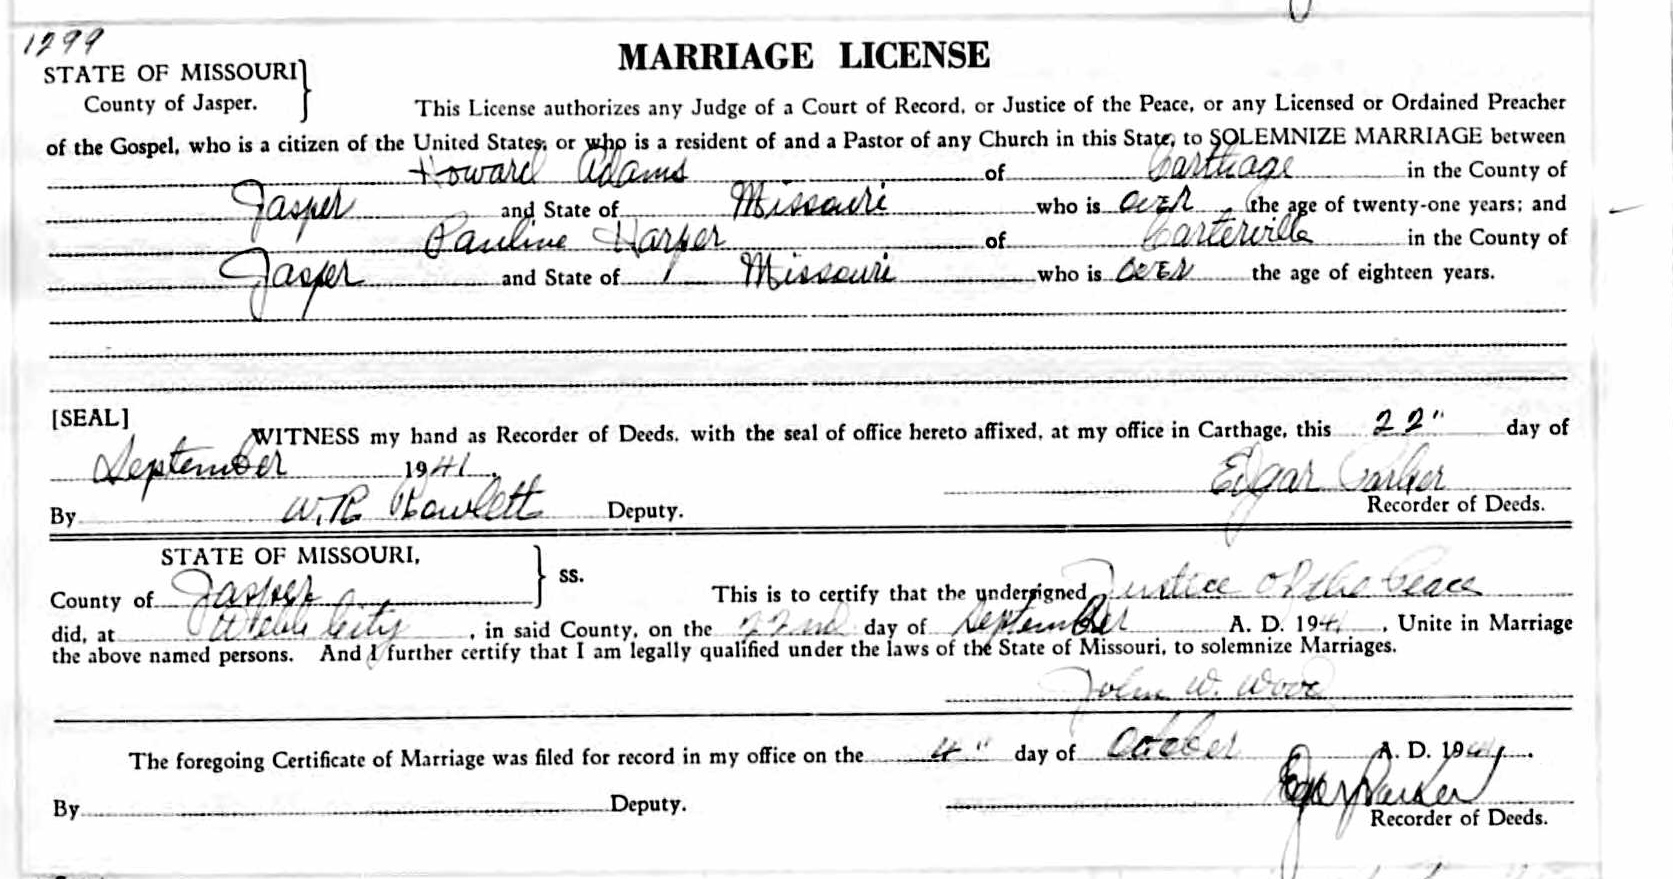 1299
MARRIAGE LICENSE
STATE OF MISSOURI
County of Jasper.
This License authorizes any Judge of a Court of Record, or Justice of the Peace, or any Licensed or Ordained Preacher
of the Gospel, who is a citizen of the United States, or who is a resident of and a Pastor of any Church in this State, to SOLEMNIZE MARRIAGE between
Howard Adams of Carthage in the County of
Jasper and State of Missouri who is over the age of twenty-one years; and
Pauline Harper of Carterville in the County of
Jasper and State of Missouri who is over the age of eighteen years.
[SEAL]
WITNESS my hand as Recorder of Deeds, with the seal of office hereto affixed, at my office in Carthage, this 22" day of
September 1941. Edgar Parker
By W.R. Howlett Deputy. Recorder of Deeds.
STATE OF MISSOURI,
County of Jasper ss. This is to certify that the undersigned Justice of the Peace
did, at Webb City, in said County, on the 22nd day of September A. D. 1941, Unite in Marriage
the above named persons. And I further certify that I am legally qualified under the laws of the State of Missouri, to solemnize Marriages.
John W. Wood
The foregoing Certificate of Marriage was filed for record in my office on the 4" day of October A. D. 1941.
Edgar Parker
By Deputy. Recorder of Deeds.